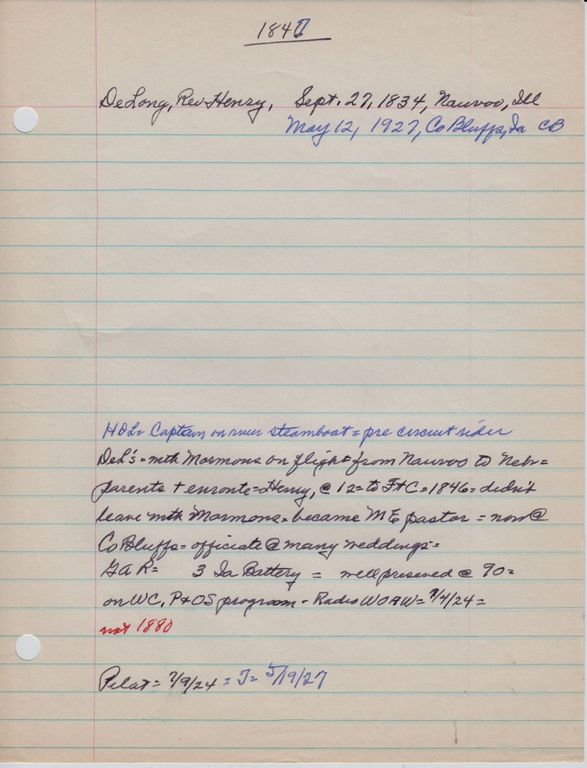 1847
DeLong, Rev Henry, Sept. 27, 1834, Nauvoo, Ill
May 12, 1927, Co Bluffs, Ia CB
HDL = Captain on river steamboat = pre circuit rider
DeL's = with Mormons on flight from Nauvoo to Nebr =
parents + enroute = Henry, @ 12 = to = 1846 = didn't
leave with Mormons = became ME pastor = now @
Co Bluffs = officiate @ many weddings =
GAR = 3 Ia Battery = well preserved @ 90 =
on WC, P+OS program - Radio WOAW = 7/4/24 =
not 1880
Pilot = 7/9/24 = T = 5/19/27